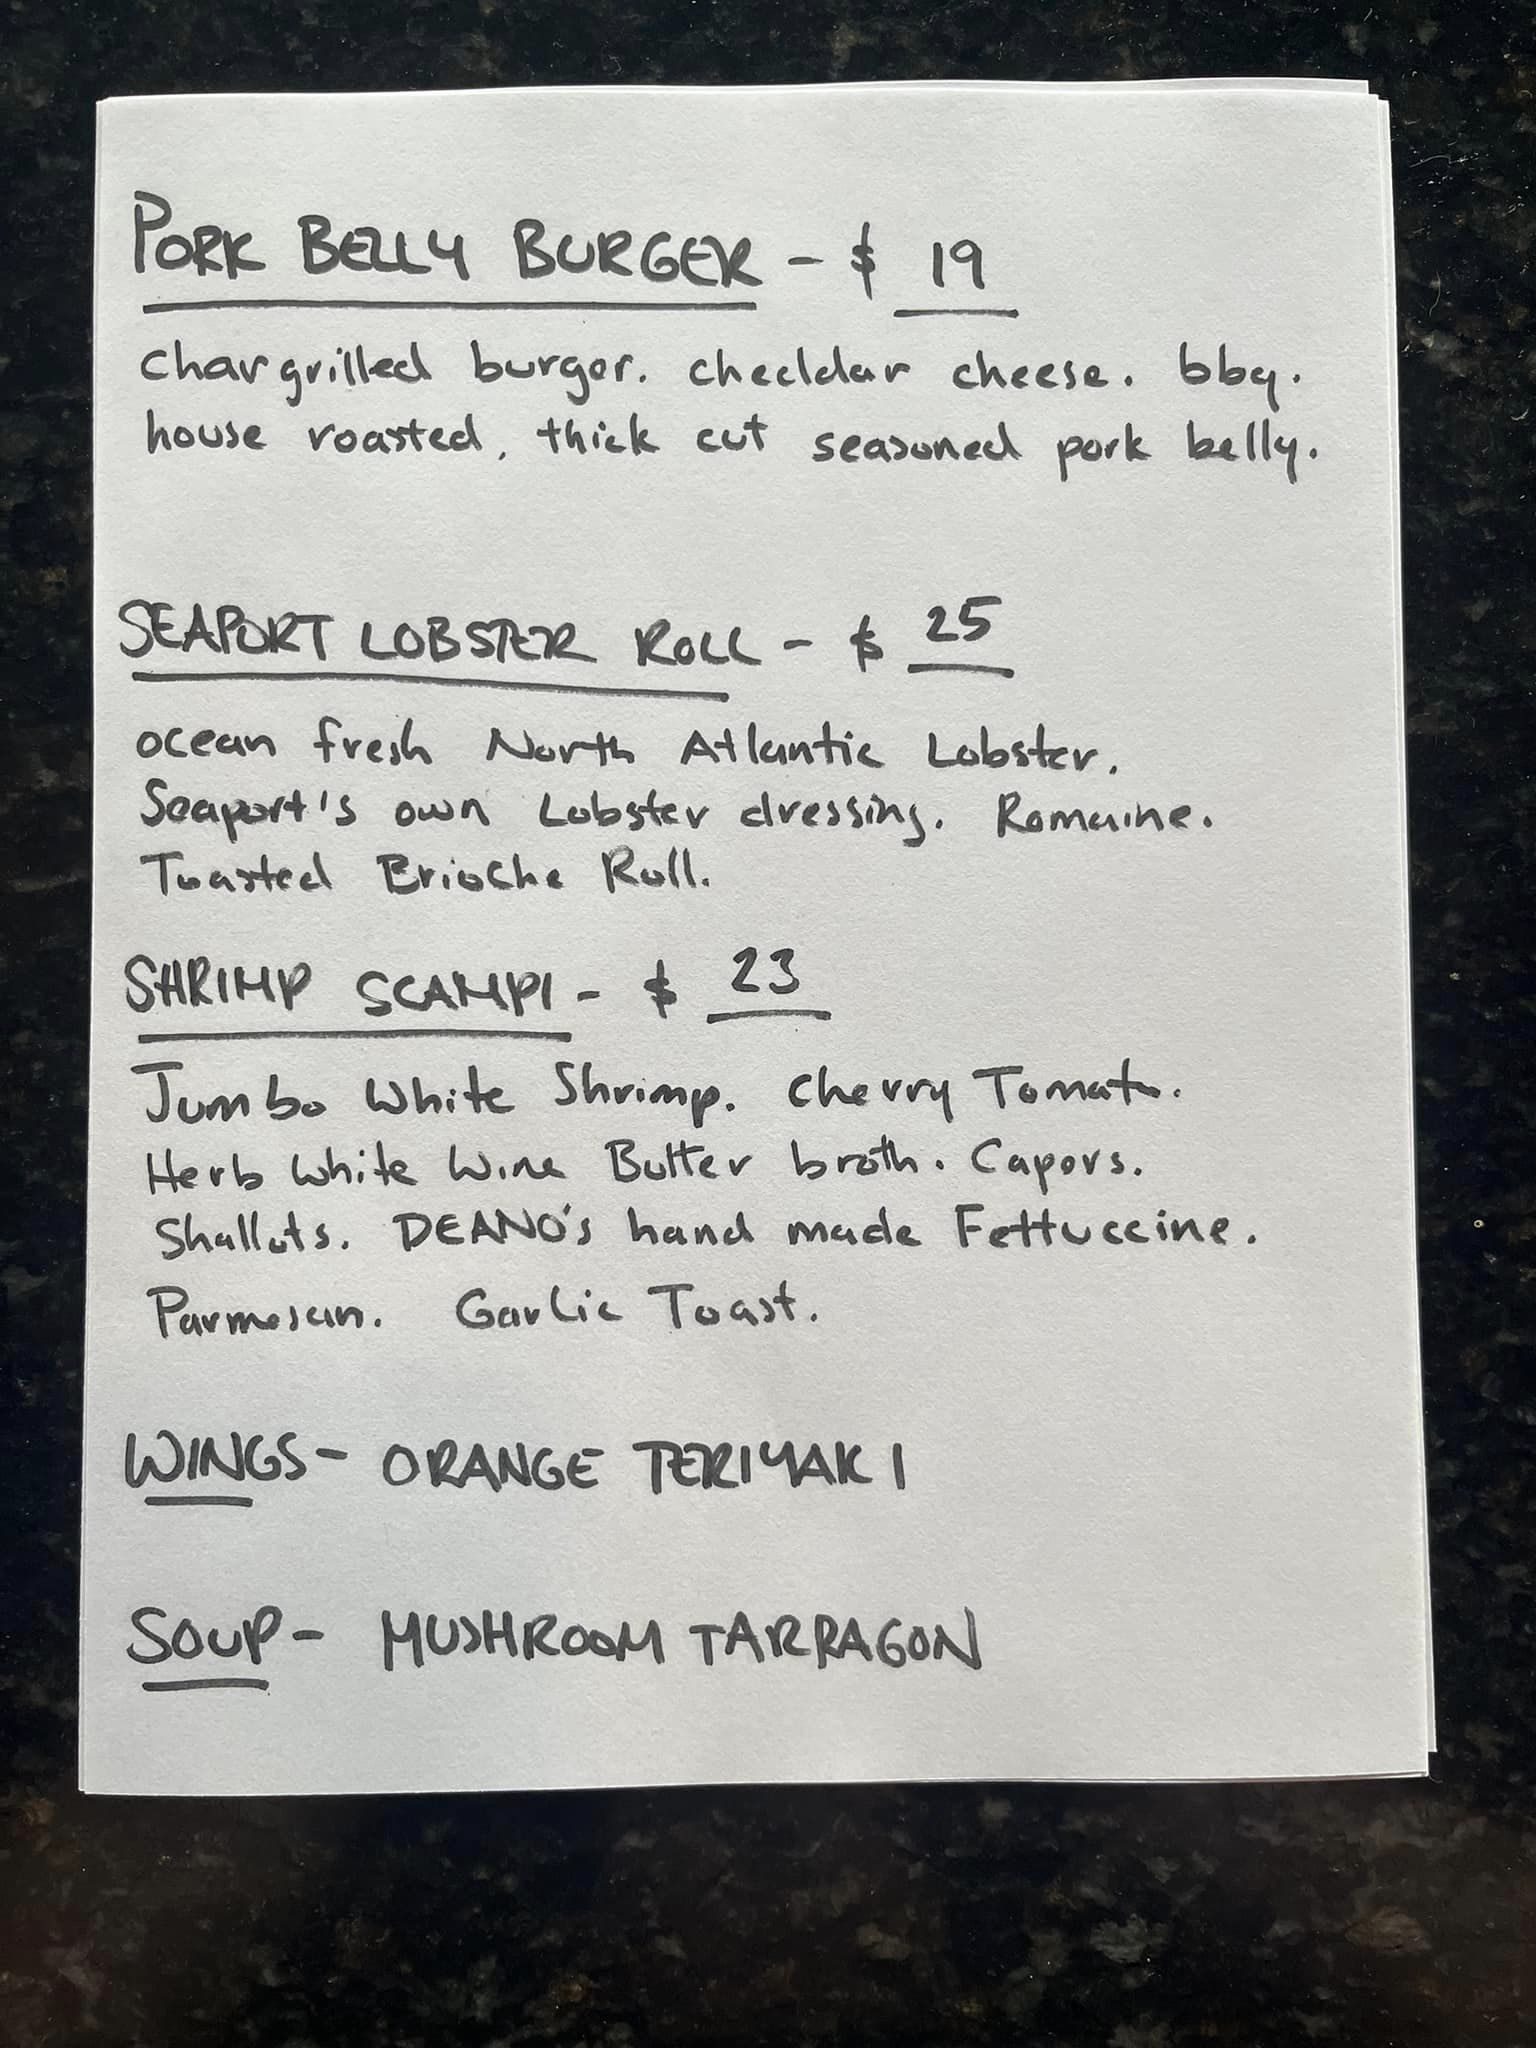 PORK BELLY BURGER - $ 19
Chargrilled burger. cheddar cheese. bbq.
house roasted, thick cut seasoned pork belly.
SEAPORT LOBSTER ROLL - $ 25
ocean fresh North Atlantic Lobster.
Seaport's own Lobster dressing. Romaine.
Toasted Brioche Roll.
SHRIMP SCAMPI - $ 23
Jumbo White Shrimp. Cherry Tomato.
Herb White Wine Butter broth. Capers.
Shallots. DEANO's hand made Fettuccine.
Parmesan. Garlic Toast.
WINGS - ORANGE TERIYAKI
SOUP - MUSHROOM TARRAGON